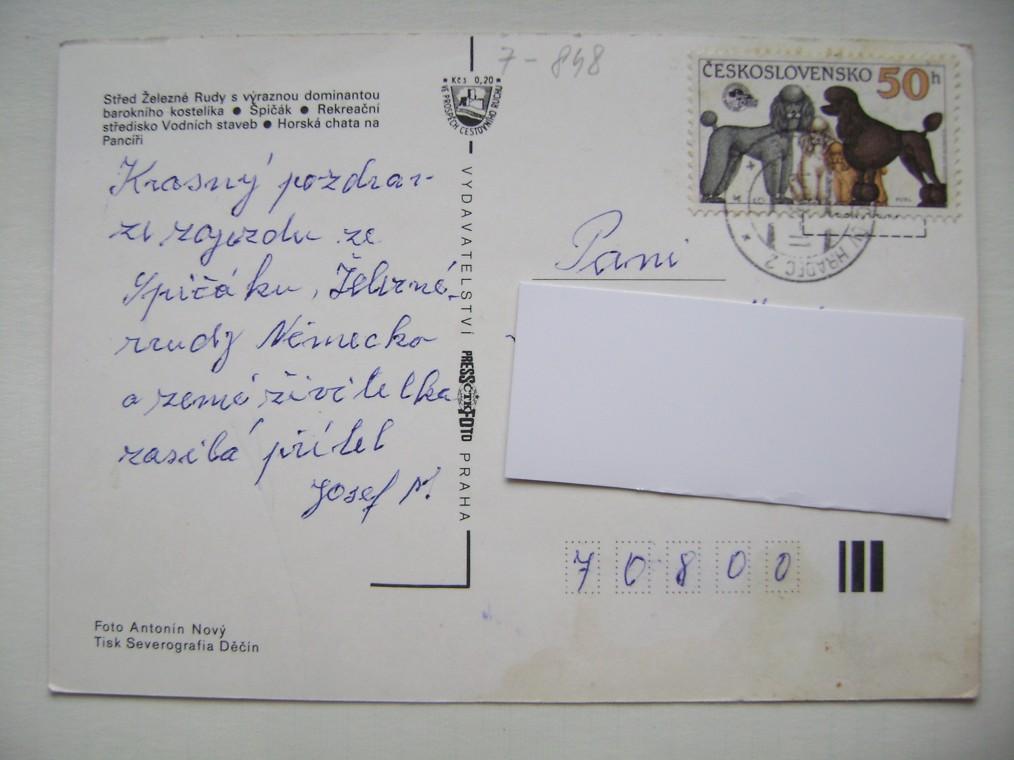 7-848
Kčs 0,20
VE PROSPĚCH CESTOVNÍHO RUCHU
ČESKOSLOVENSKO 50h
Střed Železné Rudy s výraznou dominantou
barokního kostelíka ● Špičák ● Rekreační
středisko Vodních staveb ● Horská chata na
Pancíři
Krasný pozdrav
ze zajezdu ze
Spičáku, Železné
rrudy Německo
a země živitelka
zasílá přítel
Josef M.
VYDAVATELSTVÍ PRESSFOTO PRAHA
ČTK
HRADEC 2
Paní
70800
Foto Antonín Nový
Tisk Severografia Děčín